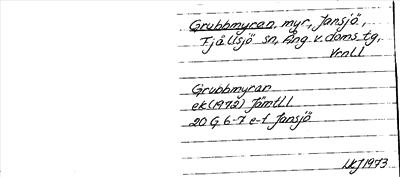 Grubbmyran, myr, Jansjö,
Fjällsjö sn, Ång v. doms tg,
Vrnll
Grubbmyran
ek (1972) Jämtll
20 G 6-7 e-f Jansjö
1973